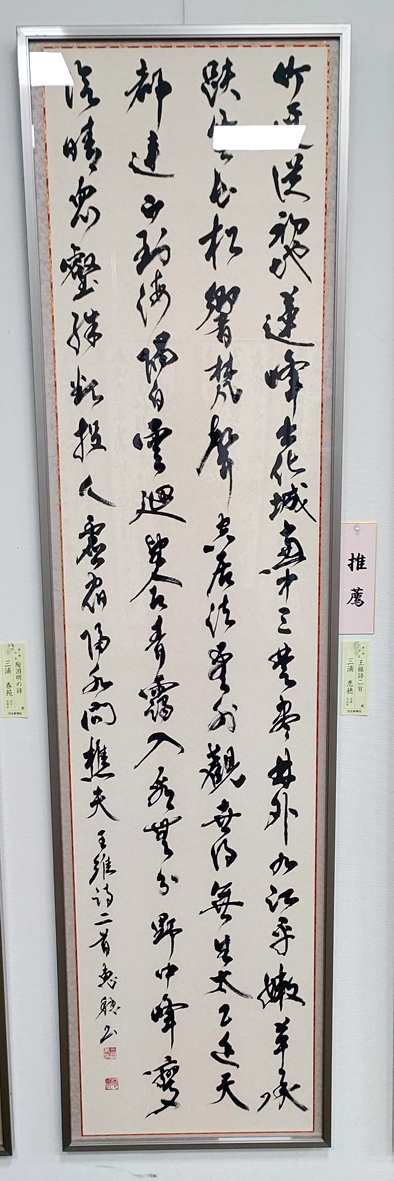 竹逕從初地蓮峰出化城窗中三楚盡林外九江平嫩草承
趺坐長松響梵聲空居法雲外觀世得無生太乙近天
都連山到海隅白雲迴望合青靄入看無分野中峰變
陰晴衆壑殊欲投人處宿隔水問樵夫 王維詩二首
推薦
王維詩二首
三浦
陶淵明の詩
三浦 春苑